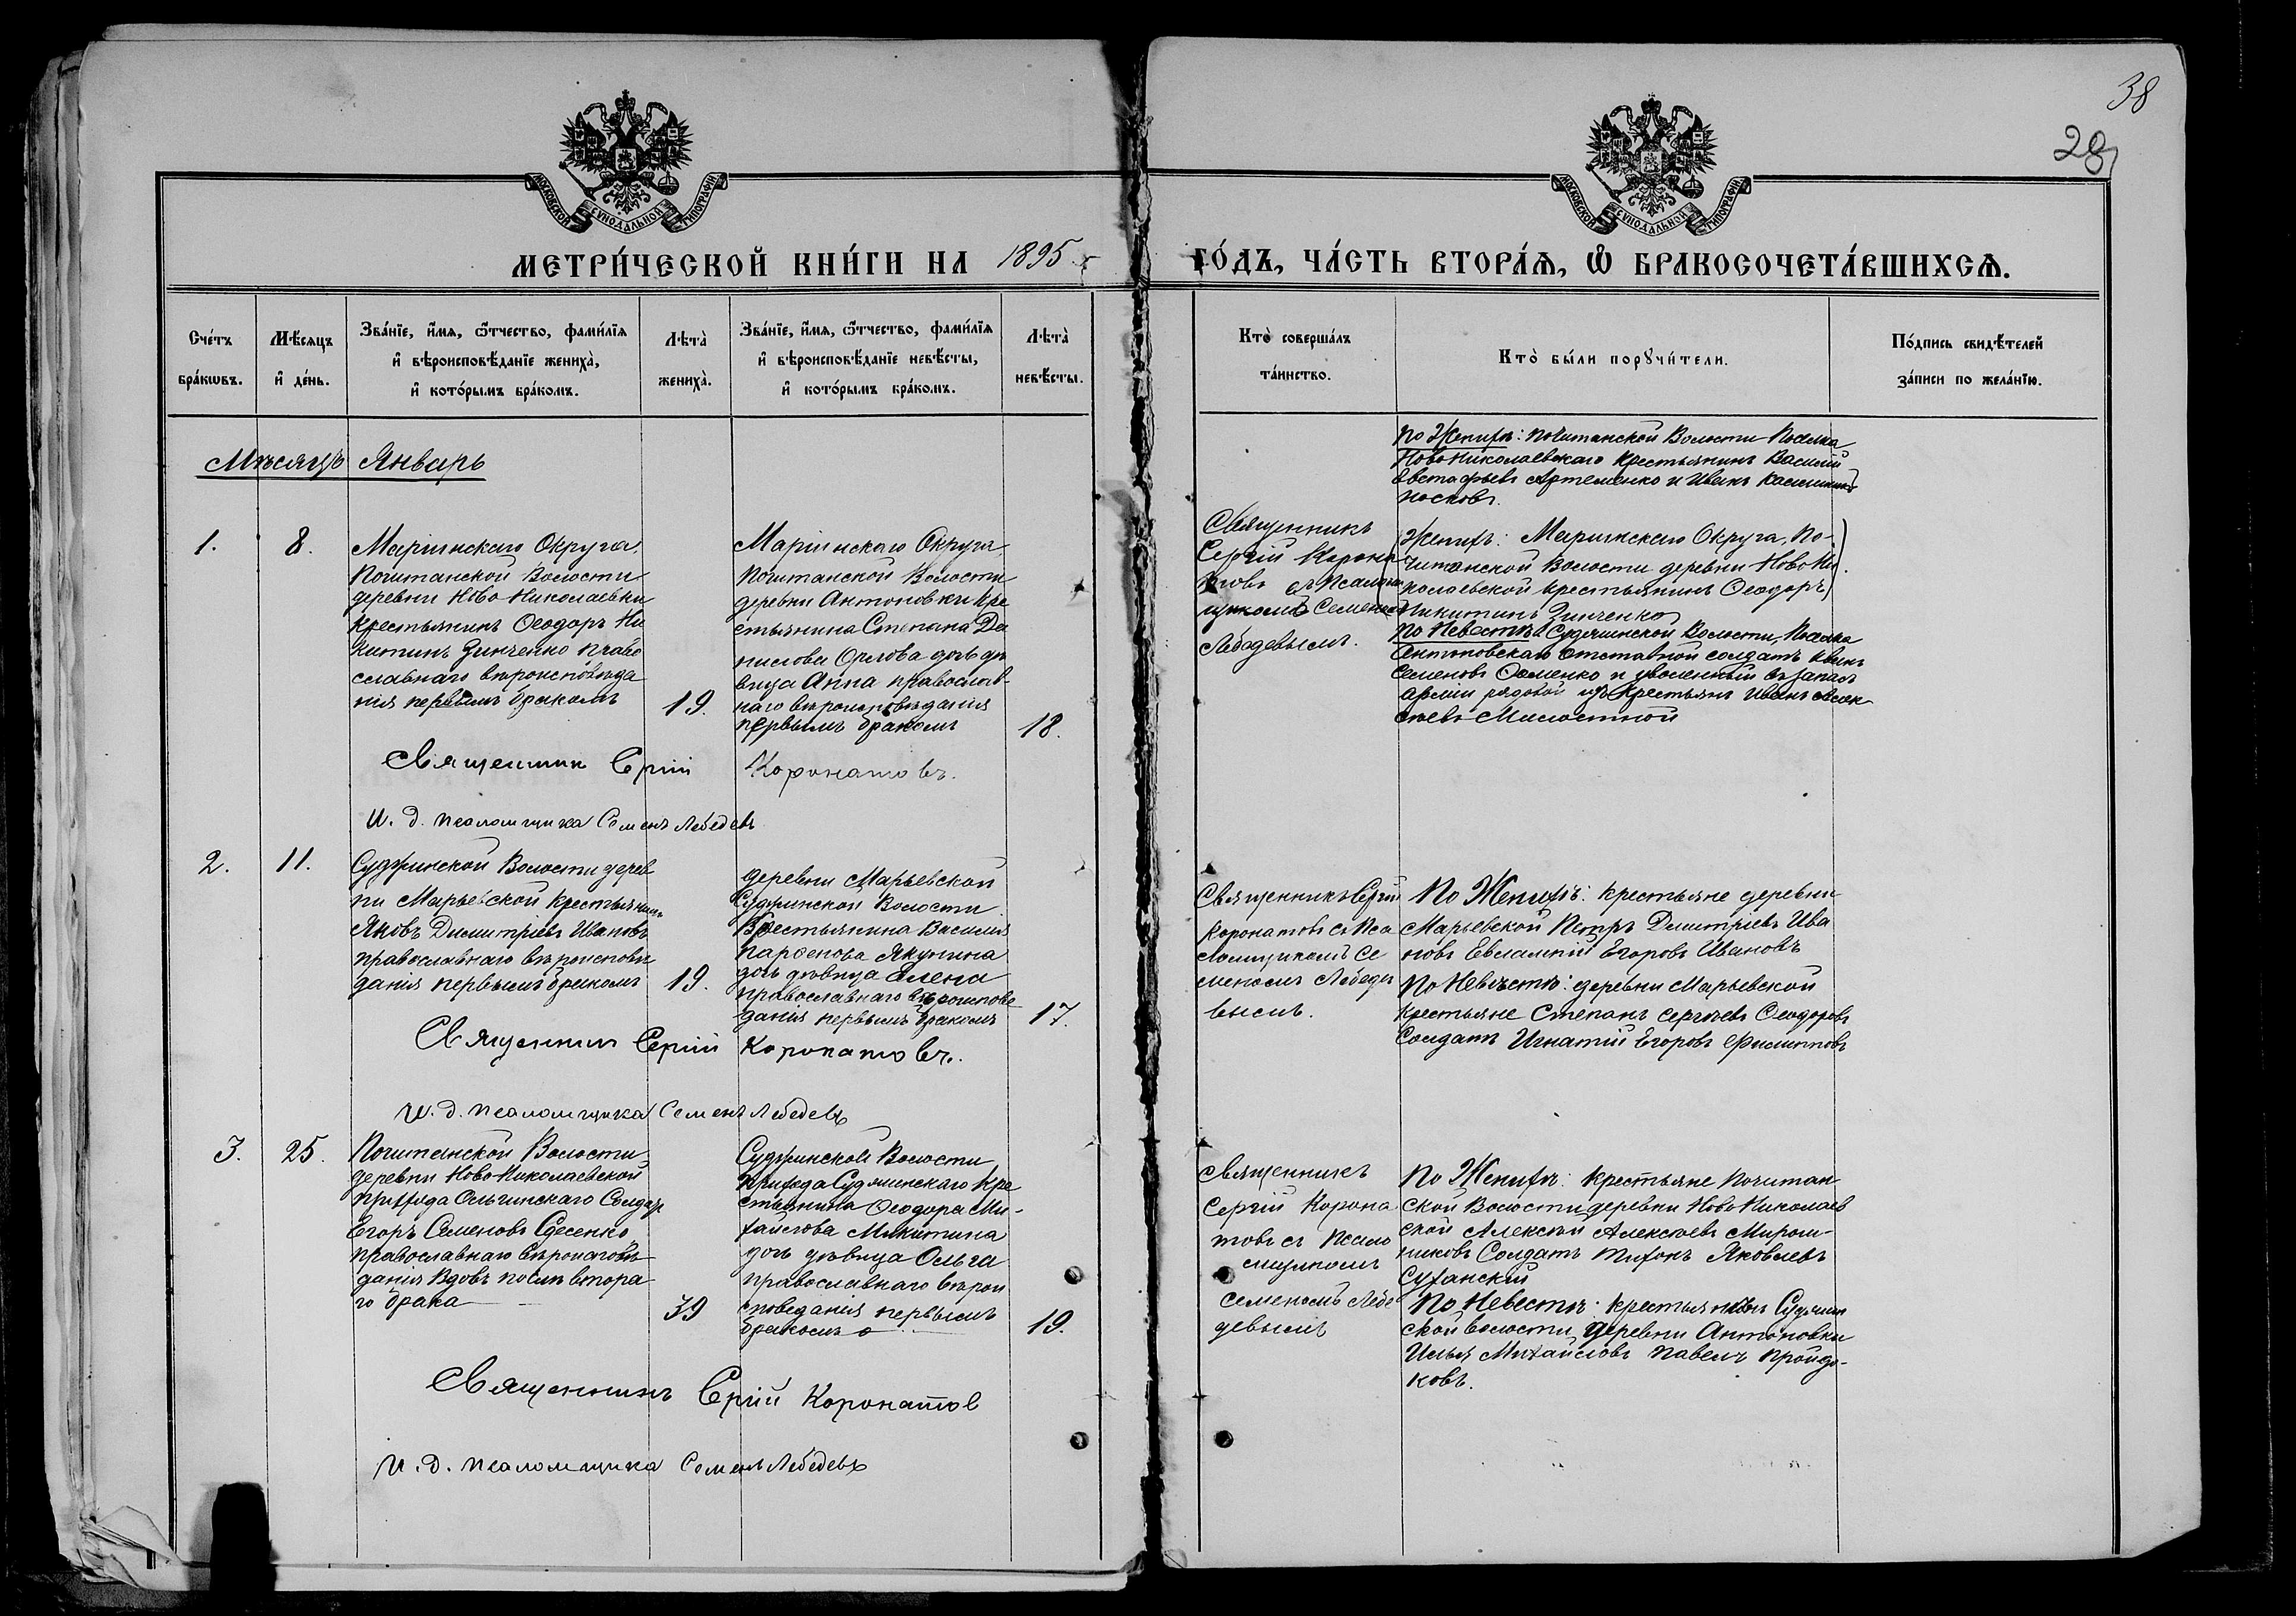 38
28
МОСКОВСКОЙ СѴНОДАЛЬНОЙ ТИПОГРАФІИ
МОСКОВСКОЙ СѴНОДАЛЬНОЙ ТИПОГРАФІИ
МЕТРИ́ЧЕСКОЙ КНИ́ГИ НА 1895 г
ГО́ДЪ, ЧА́СТЬ ВТОРА́Ѧ, Ѿ БРАКОСОЧЕТА́ВШИХСѦ.
Сче́тъ
бра́кѡвъ.
Мѣ́сяцъ
и҆ де́нь.
Зва́нїе, и҆́мѧ, ѻ҆́тчество, фами́лїѧ
и҆ вѣроисповѣ́данїе жениха̀,
и҆ кото́рымъ бра́комъ.
Лѣта̀
жениха̀.
Зва́нїе, и҆́мѧ, ѻ҆́тчество, фами́лїѧ
и҆ вѣроисповѣ́данїе невѣ́сты,
и҆ кото́рымъ бра́комъ.
Лѣта̀
невѣ́сты.
Кто̀ соверша́лъ
та́инство.
Кто̀ бы́ли порꙋчи́тели.
По́дпись свидѣ́телей
за́писи по жела́нїю.
Мѣсяцъ Январь
1.
8.
Маріинскаго Округа
Почитанской Волости
деревни Ново Николаевки
крестьянинъ Ѳеодоръ Ни
китинъ Зинченко право
славнаго вѣроисповѣда
нія первымъ бракомъ
19.
Маріинскаго Округа
Почитанской Волости
деревни Антоновки кре
стьянина Степана Де
нисова Орлова дочь дѣ
вица Анна православ-
наго вѣроисповѣданія
первымъ бракомъ
18.
Священникъ
Сергій Корона
товъ съ Псалом
щикомъ Семеномъ
Лебедевымъ.
По Женихѣ: Почитанской Волости Поселка
Ново Николаевскаго Крестьянинъ Василій
Евстафьевъ Артеменко и Иванъ
носковъ.
(Женихъ: Маріинскаго Округа, По-
читанской Волости деревни Ново Ни
колаевской крестьянинъ Ѳеодоръ)
Никитинъ Зинченко
По Невестѣ Суджинской Волости, Поселка
Антоновскаго отставной солдатъ Иванъ
Семеновъ Ѳоменко и уволенный въ запасъ
арміи рядовой изъ крестьянъ Иванъ Алек
сѣевъ Милостной
Священник Сергій Коронатовъ.
И. д. псаломщика Семенъ Лебедевъ
2.
11.
Суджинской Волости дерев
ни Марьевской Крестьянинъ
Яковъ Димитріевъ Ивановъ
православнаго вѣроисповѣ
данія первымъ бракомъ
19.
деревни Марьевской
Суджинской Волости
Крестьянина Василія
Парѳенова Якунина
дочь дѣвица Елена
православнаго вѣроисповѣ
данія первымъ бракомъ
17.
Священникъ Сергій
Коронатовъ съ Пса
ломщикомъ Се
меномъ Лебеде
вымъ.
По Женихѣ: Крестьяне деревни
Марьевской Петръ Димитріевъ Ива
новъ Евлампій Егоровъ Ивановъ
По Невѣстѣ: деревни Марьевской
крестьяне Степанъ Сергѣевъ Ѳеодоровъ
Солдатъ Игнатій Егоровъ Филипповъ
Священник Сергій Коронатовъ.
И. д. псаломщика Семенъ Лебедевъ
3.
25.
Почитанской Волости
деревни Ново Николаевской
прихода Ольгинскаго Солдатъ
Егоръ Семеновъ
православнаго вѣроисповѣ
данія Вдовъ послѣ втора
го брака
39
Суджинской Волости
прихода Суджинскаго кре
стьянина Ѳеодора Ми-
хайлова Микитина
дочь дѣвица Ольга
православнаго вѣрои
споведанія первымъ
бракомъ
19.
Священникъ
Сергій Корона
товъ съ Псало
мщикомъ
Семеномъ Лебе
девымъ
По Женихѣ: Крестьяне Почитан
ской Волости деревни Ново Николаев
ской Алексѣй Алексѣевъ Мирош-
никовъ Солдатъ Тихонъ Яковлевъ
Суханскій
По Невестѣ: крестьянинъ Суджин
ской волости деревни Антоновки
Илья Михайловъ Павелъ Пройдо-
ковъ.
Священникъ Сергій Коронатов
И. д. псаломщика Семенъ Лебедевъ